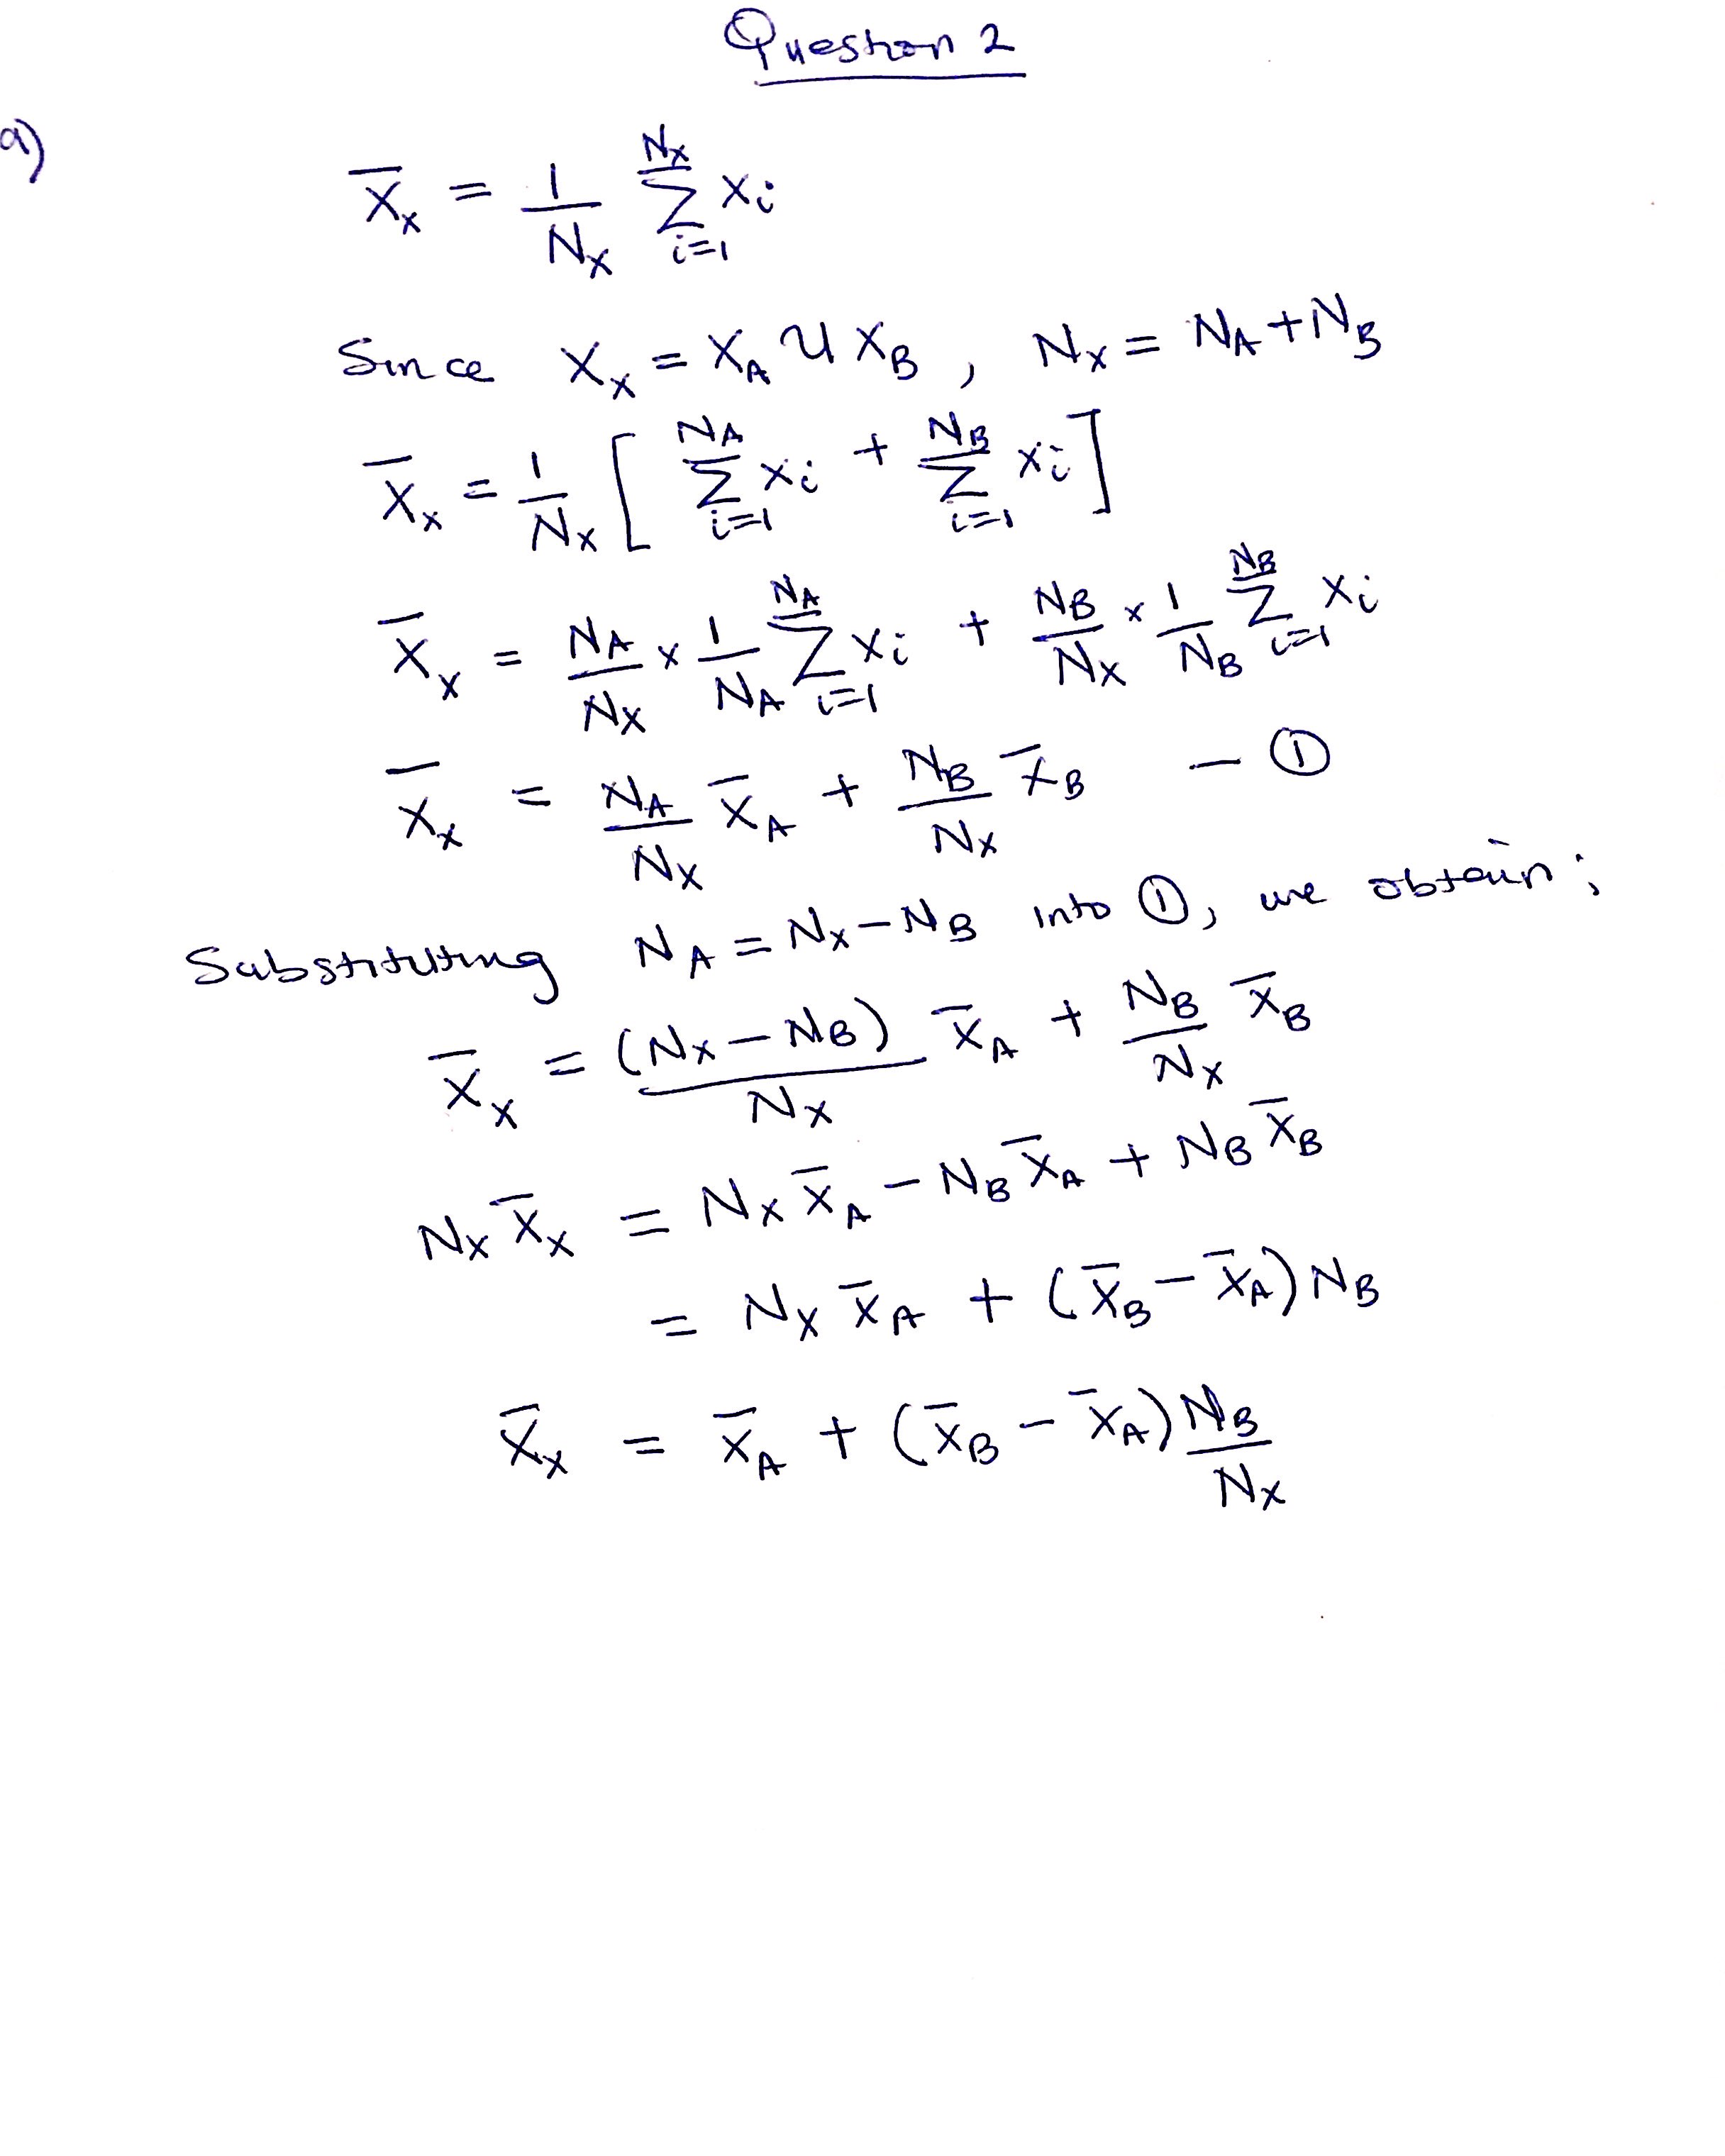 Question 2
a)
X̄ₓ = 1/Nₓ ∑_{i=1}^{Nₓ} xᵢ
Since Xₓ = X_A ∪ X_B , Nₓ = N_A + N_B
X̄ₓ = 1/Nₓ [ ∑_{i=1}^{N_A} xᵢ + ∑_{i=1}^{N_B} xᵢ ]
X̄ₓ = N_A/Nₓ × 1/N_A ∑_{i=1}^{N_A} xᵢ + N_B/Nₓ × 1/N_B ∑_{i=1}^{N_B} xᵢ
X̄ₓ = N_A/Nₓ x̄_A + N_B/Nₓ x̄_B — ①
Substituting N_A = Nₓ − N_B into ①, we obtain;
X̄ₓ = (Nₓ − N_B)/Nₓ x̄_A + N_B/Nₓ x̄_B
Nₓ x̄ₓ = Nₓ x̄_A − N_B x̄_A + N_B x̄_B
= Nₓ x̄_A + (x̄_B − x̄_A) N_B
x̄ₓ = x̄_A + (x̄_B − x̄_A) N_B/Nₓ